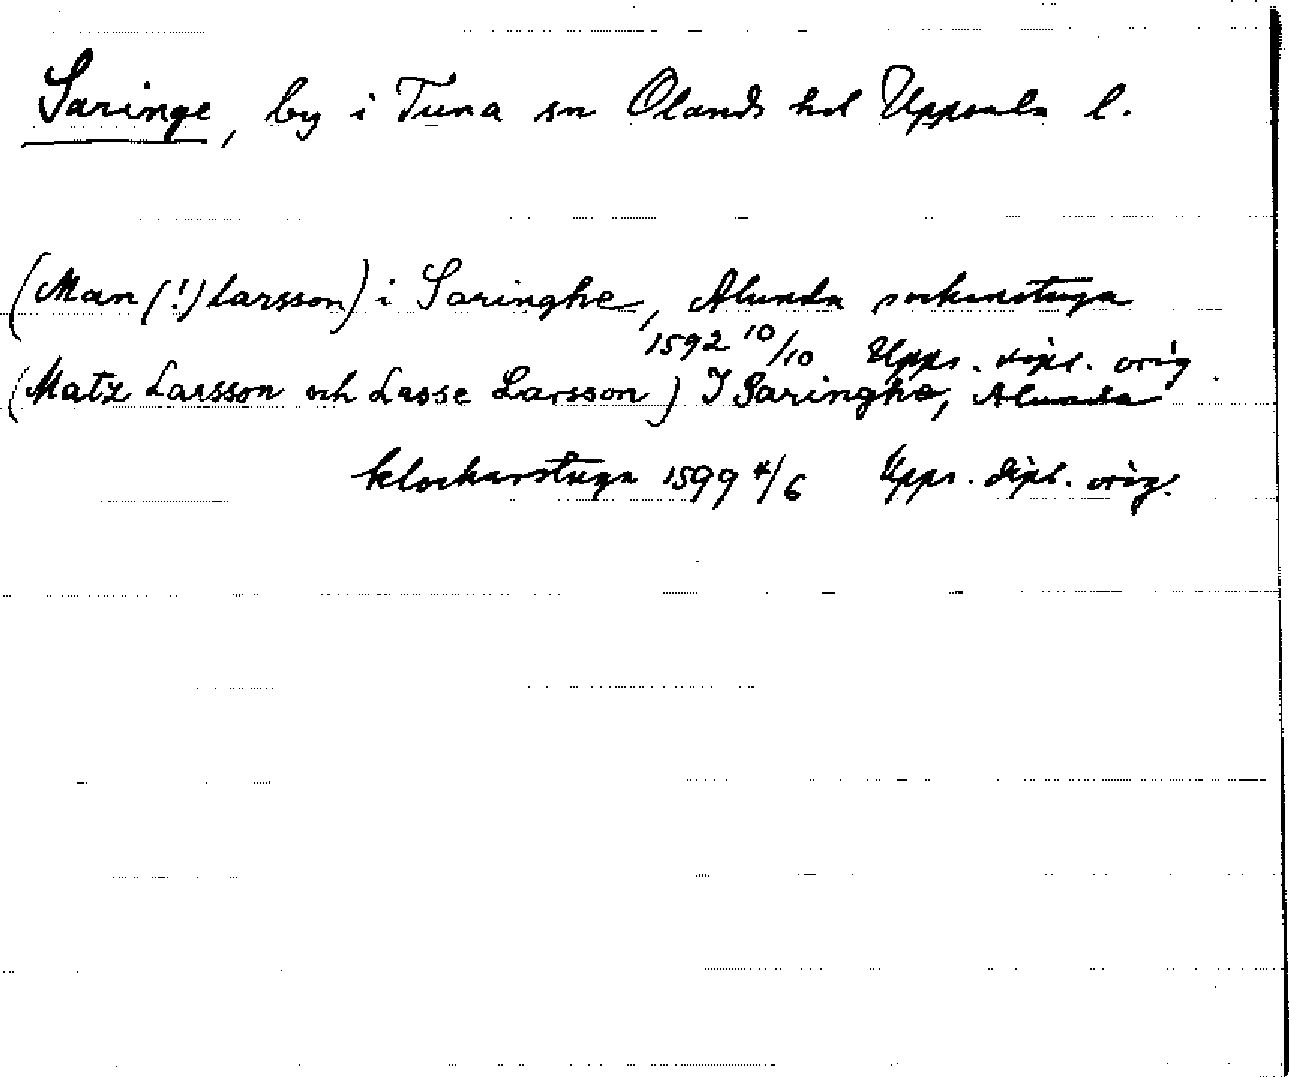 Saringe, by i Tuna sn Olands hd Uppsala l.
(Man (!) Larsson) i Saringhe, Alunda sockenstuga
1592 10/10 Upps. dipl. orig.
(Matz Larsson och Lasse Larsson) I Saringhe, Alunda
klockarstuga 1599 4/6 Upps. dipl. orig.